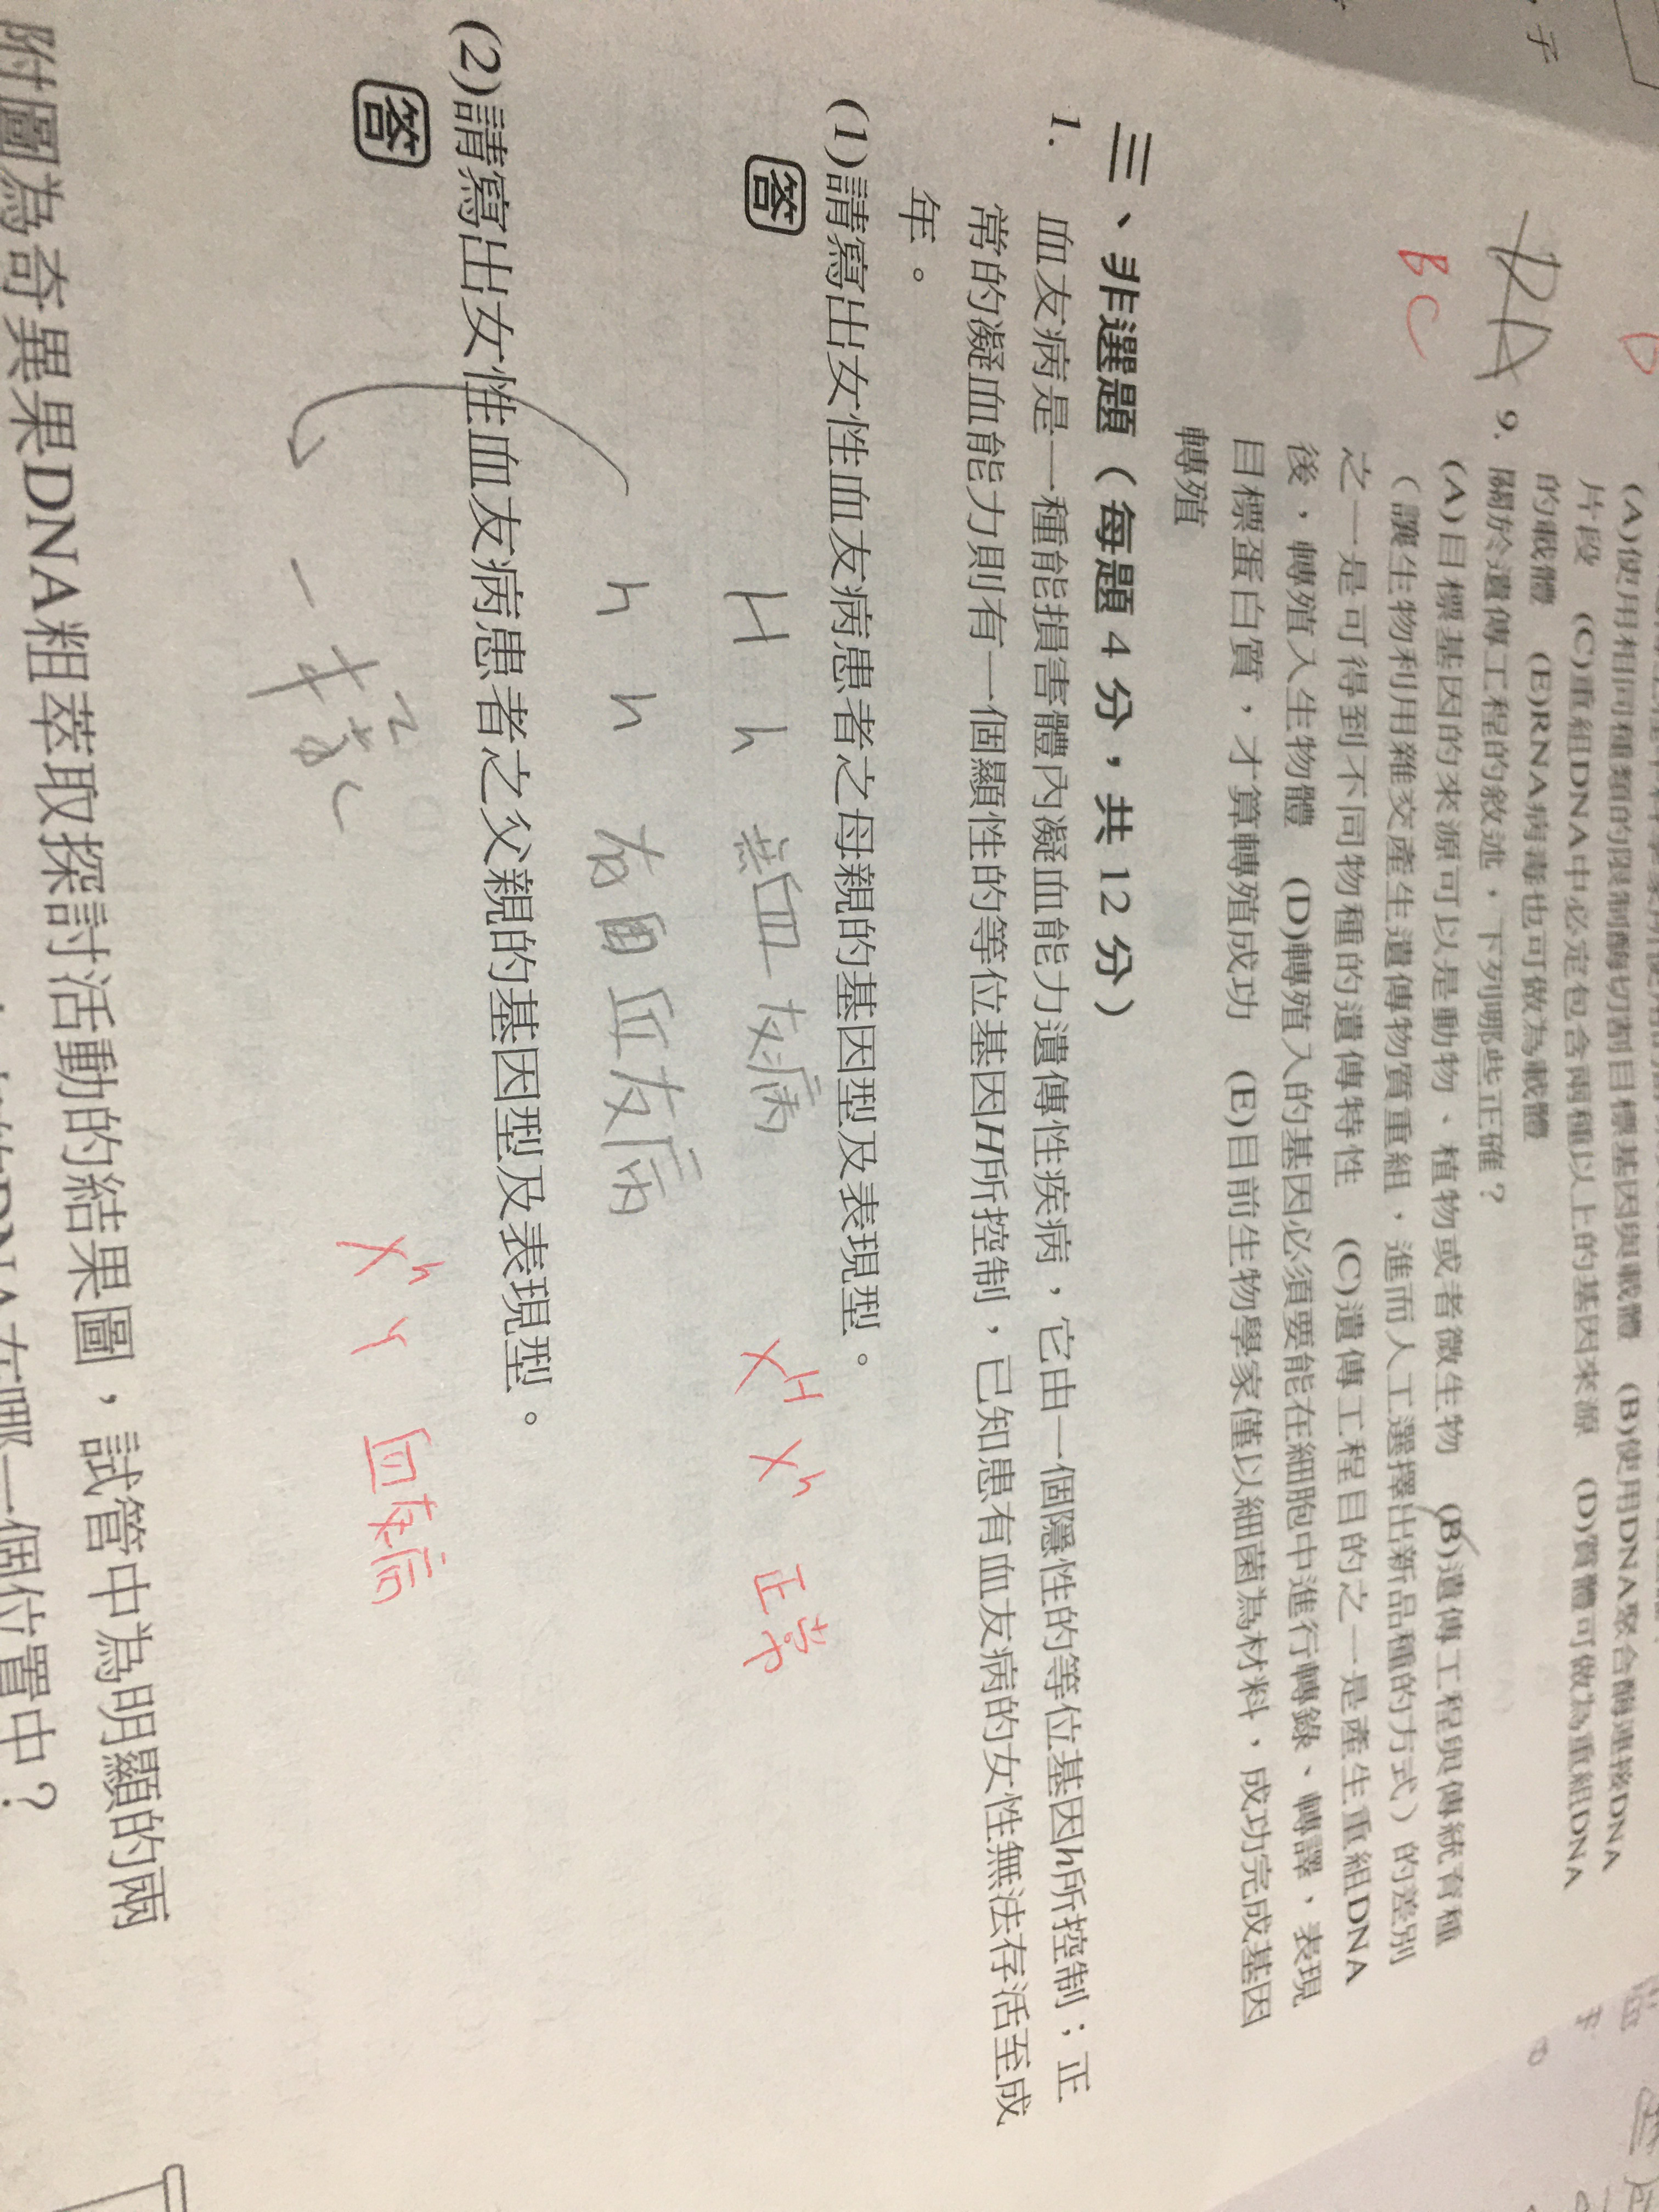 (A)使用相同種類的限制酶切割目標基因與載體 (B)使用DNA聚合酶連接DNA
片段 (C)重組DNA中必定包含兩種以上的基因來源 (D)質體可做為重組DNA
的載體 (E)RNA病毒也可做為載體
DA
BC
9. 關於遺傳工程的敘述，下列哪些正確？
(A)目標基因的來源可以是動物、植物或者微生物 (B)遺傳工程與傳統育種
（讓生物利用雜交產生遺傳物質重組，進而人工選擇出新品種的方式）的差別
之一是可得到不同物種的遺傳特性 (C)遺傳工程目的之一是產生重組DNA
後，轉殖入生物體 (D)轉殖入的基因必須要能在細胞中進行轉錄、轉譯，表現
目標蛋白質，才算轉殖成功 (E)目前生物學家僅以細菌為材料，成功完成基因
轉殖
三、非選題（每題 4 分，共 12 分）
1. 血友病是一種能損害體內凝血能力遺傳性疾病，它由一個隱性的等位基因h所控制；正
常的凝血能力則有一個顯性的等位基因H所控制，已知患有血友病的女性無法存活至成
年。
(1)請寫出女性血友病患者之母親的基因型及表現型。
答 H h 無血友病 X^H X^h 正常
h h 有血友病
(2)請寫出女性血友病患者之父親的基因型及表現型。
答 X^h Y 血友病
一樣
附圖為奇異果DNA粗萃取探討活動的結果圖，試管中為明顯的兩
DNA在哪一個位置中？